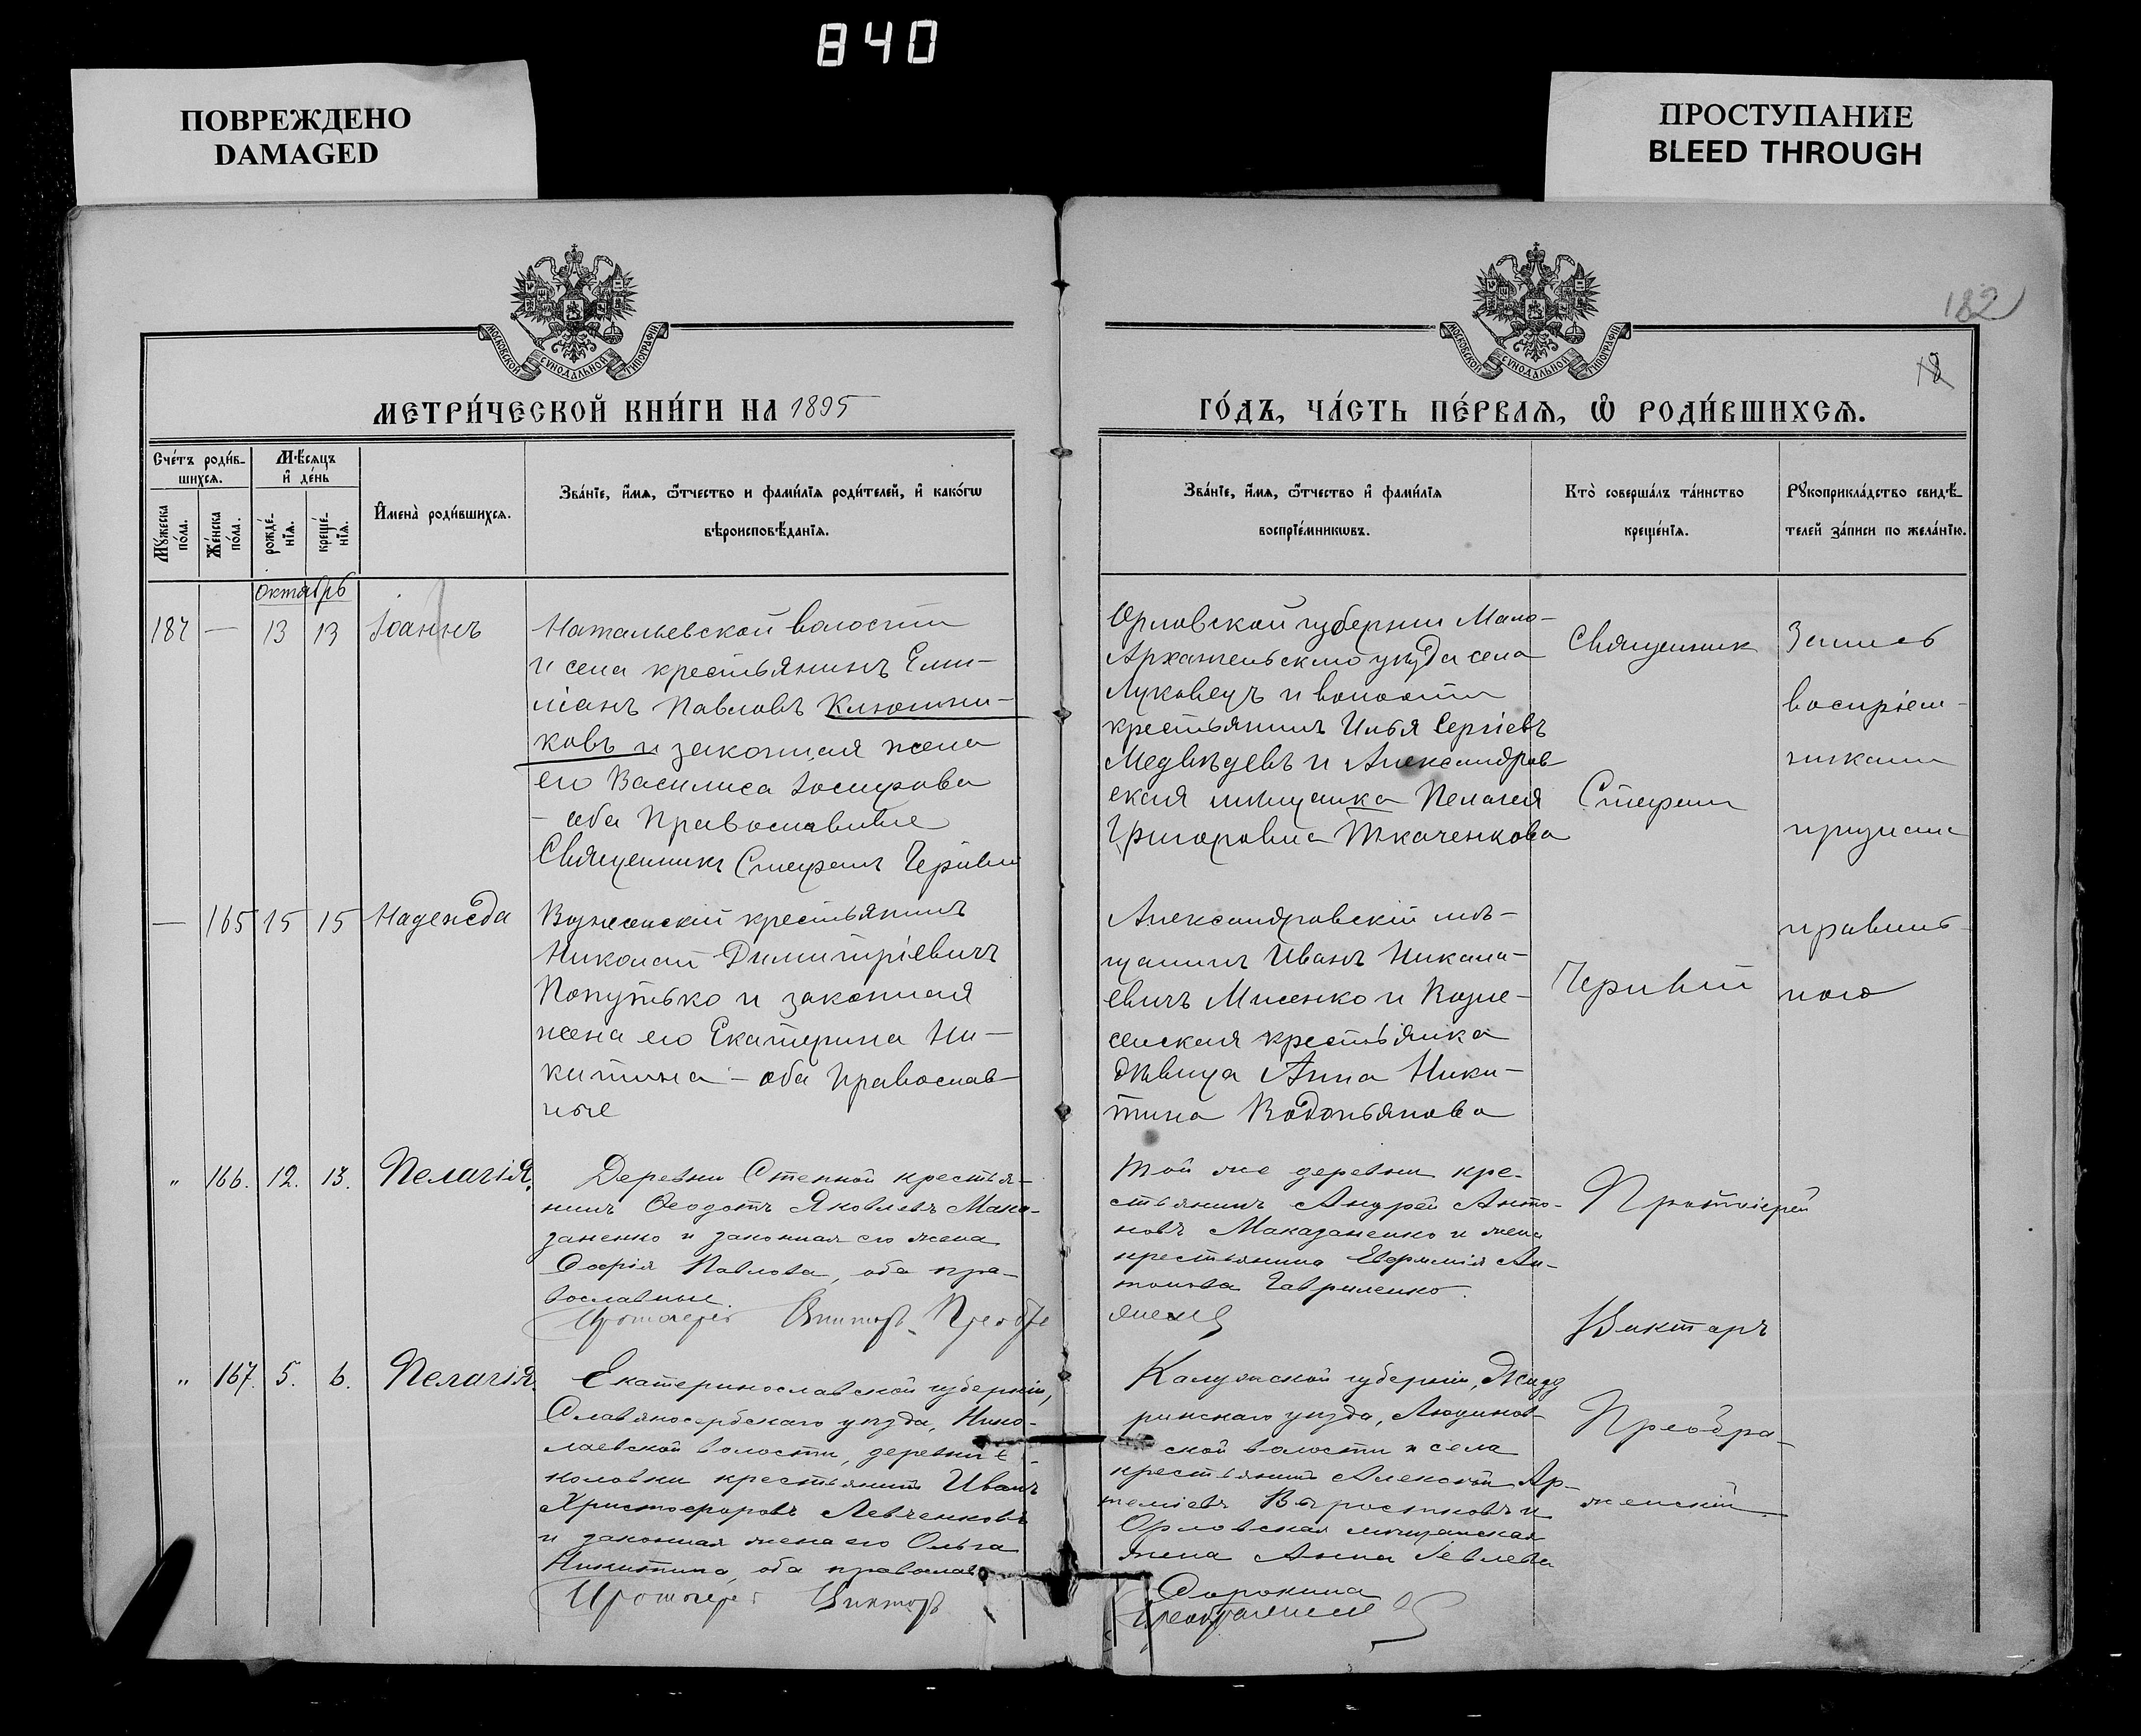 840
ПОВРЕЖДЕНО
DAMAGED
ПРОСТУПАНИЕ
BLEED THROUGH
МОСКОВСКОЙ СѴНОДАЛЬНОЙ ТИПОГРАФІИ
МОСКОВСКОЙ СѴНОДАЛЬНОЙ ТИПОГРАФІИ
182
18
МЕТРИ́ЧЕСКОЙ КНИ́ГИ НА 1895
ГО́ДЪ, ЧА́СТЬ ПЕ́РВАѦ, Ѡ҆ РОДИ́ВШИХСѦ.
Сче́тъ роди́в-
шихсѧ.
Мѣ́сѧцъ
и҆ де́нь
Му́жеска
по́ла.
Же́нска
по́ла.
рожде́-
нїѧ.
креще́-
нїѧ.
И҆мена̀ роди́вшихсѧ.
Зва́нїе, и҆́мѧ, ѻ҆́тчество и фами́лїѧ роди́телей, и҆ како́гѡ
вѣроисповѣ́данїѧ.
Зва́нїе, и҆́мѧ, ѻ҆́тчество и҆ фами́лїѧ
воспрїе́мникѡвъ.
Кто̀ соверша́лъ та́инство
креще́нїѧ.
Рꙋкоприкла́дство свидѣ́-
телей за́писи по жела́нїю.
Октябрь
187 — 13 13 Іоаннъ
Натальевской волости
и села крестьянинъ Еми-
ліанъ Павловъ Ключни-
ковъ и законная жена
его Василиса Іосифова
- оба Православные
Священникъ Стефанъ Черивій
Орловской губерніи Мало-
Архангельскаго уѣзда села
Луковецъ и волости
крестьянинъ Илья Сергіевъ
Медвѣдевъ и Александров
ская мѣщанка Пелагея
Григоровна Ткаченкова
Священник
Стефан
Черивій
Запись
воспріем-
никами
признана
правиль-
ною
— 165 15 15 Надежда
Вознесенскій крестьянинъ
Николай Димитріевичъ
Попутько и законная
жена его Екатерина Ни-
китина - оба Православ-
ные
Александровскій мѣ-
щанинъ Иванъ Никола-
евичъ Мисенко и Возне-
сенская крестьянка
дѣвица Анна Ники-
тина Водопьянова
" 166. 12. 13. Пелагія.
Деревни Степной крестья-
нинъ Ѳеодотъ Яковлевъ Мака-
заненко и законная его жена
Софія Павлова, оба пра-
вославные.
Протоіерей Викторъ Преобра
Той же деревни кре-
стьянинъ Андрей Анто-
новъ Маказаненко и жена
крестьянина Евфимія Ан-
тонова Гавриленко.
Протоіерей
Викторъ
Преобра-
женскій
" 167. 5. 6. Пелагія.
Екатеринославской губерніи,
Славяносербскаго уѣзда, Нико-
лаевской волости, деревни
крестьянинъ Иванъ
Христофоровъ Левченковъ
и законная жена его Ольга
Никитина, оба православ
Протоіерей Викторъ
Калужской губерніи, Жизд
ринскаго уѣзда, Людинов-
ской волости и села
крестьянинъ Алексѣй Ар-
теміевъ и
Орловская мѣщанская
жена Анна
Сорокина
Преображенскій